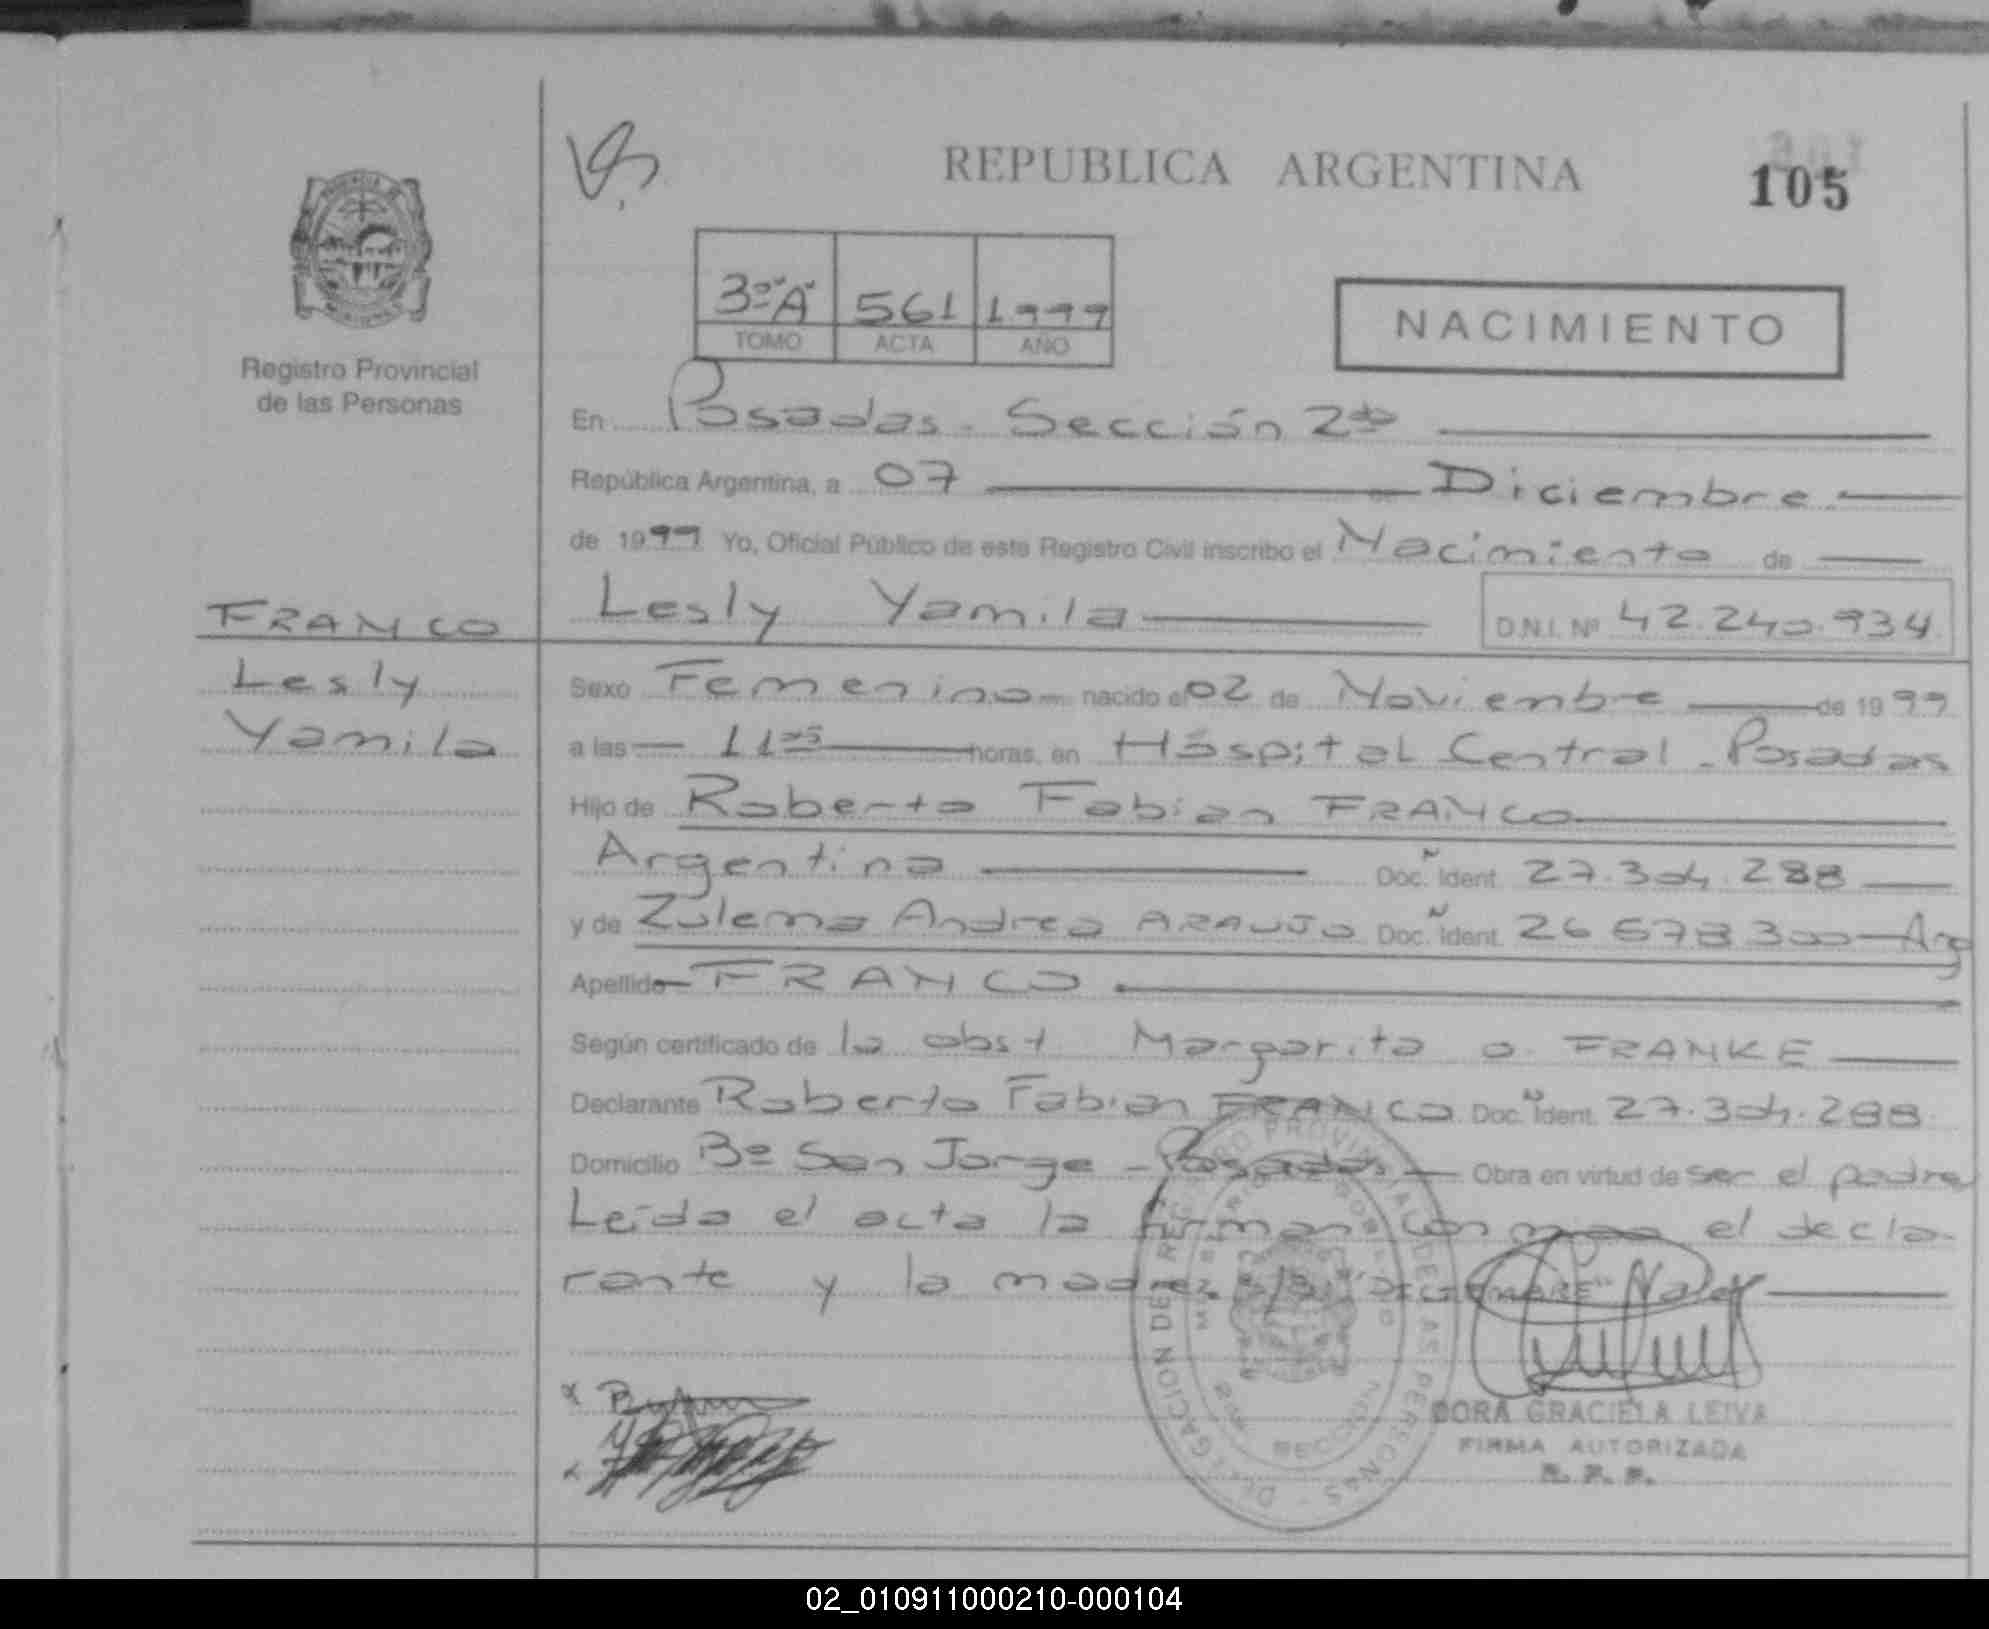 REPUBLICA ARGENTINA
105
3º "A" 561 1999
TOMO ACTA AÑO
NACIMIENTO
Registro Provincial
de las Personas
En Posadas - Sección 2da
República Argentina, a 07 de Diciembre
de 1999 Yo, Oficial Público de este Registro Civil inscribo el Nacimiento de
Lesly Yamila D.N.I. Nº 42.240.934
FRANCO
Lesly
Yamila
Sexo Femenino nacido el 02 de Noviembre de 1999
a las 11 horas, en Hospital Central - Posadas
Hijo de Roberto Fabian FRANCO
Argentina Doc. Ident. 27.304.288
y de Zulema Andrea ARAUJO Doc. Ident. 26 678 300 - Arg
Apellido FRANCO
Según certificado de la obst Margarita o FRANKE
Declarante Roberto Fabian FRANCO Doc. Ident. 27.304.288
Domicilio Bº San Jorge - Posadas Obra en virtud de ser el padre
Leida el acta la firman con migo el decla-
rante y la madre "DICIEMBRE" Vale
DELEGACION DEL REGISTRO PROVINCIAL DE LAS PERSONAS
SECCION
DORA GRACIELA LEIVA
FIRMA AUTORIZADA
R. P. P.
02_010911000210-000104